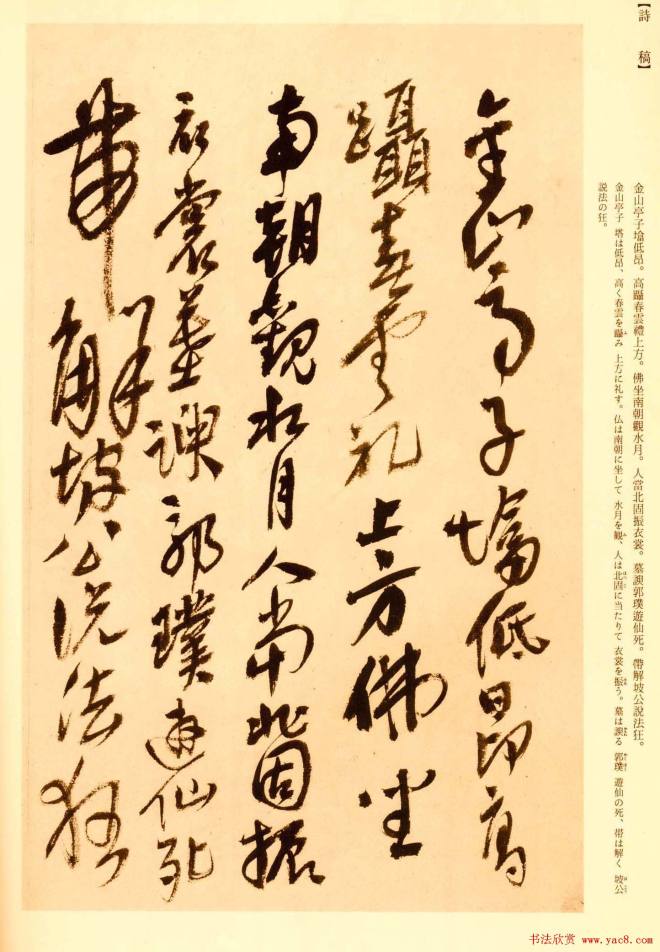 【詩稿】
金山亭子墖低昂。高躡春雲禮上方。佛坐南朝觀水月。人當北固振衣裳。墓謏郭璞遊仙死。帶解坡公說法狂。
金山亭子 塔は低昂、高く春雲を躡み 上方に礼す。仏は南朝に坐して 水月を観、人は北固に当たりて 衣裳を振う。墓は謏る 郭璞 遊仙の死、帯は解く 坡公
説法の狂。
金山亭子墖低昂高
躡春雲礼上方佛坐
南朝觀水月人當北固振
衣裳墓謏郭璞遊仙死
帶解坡公說法狂
书法欣赏 www.yac8.com